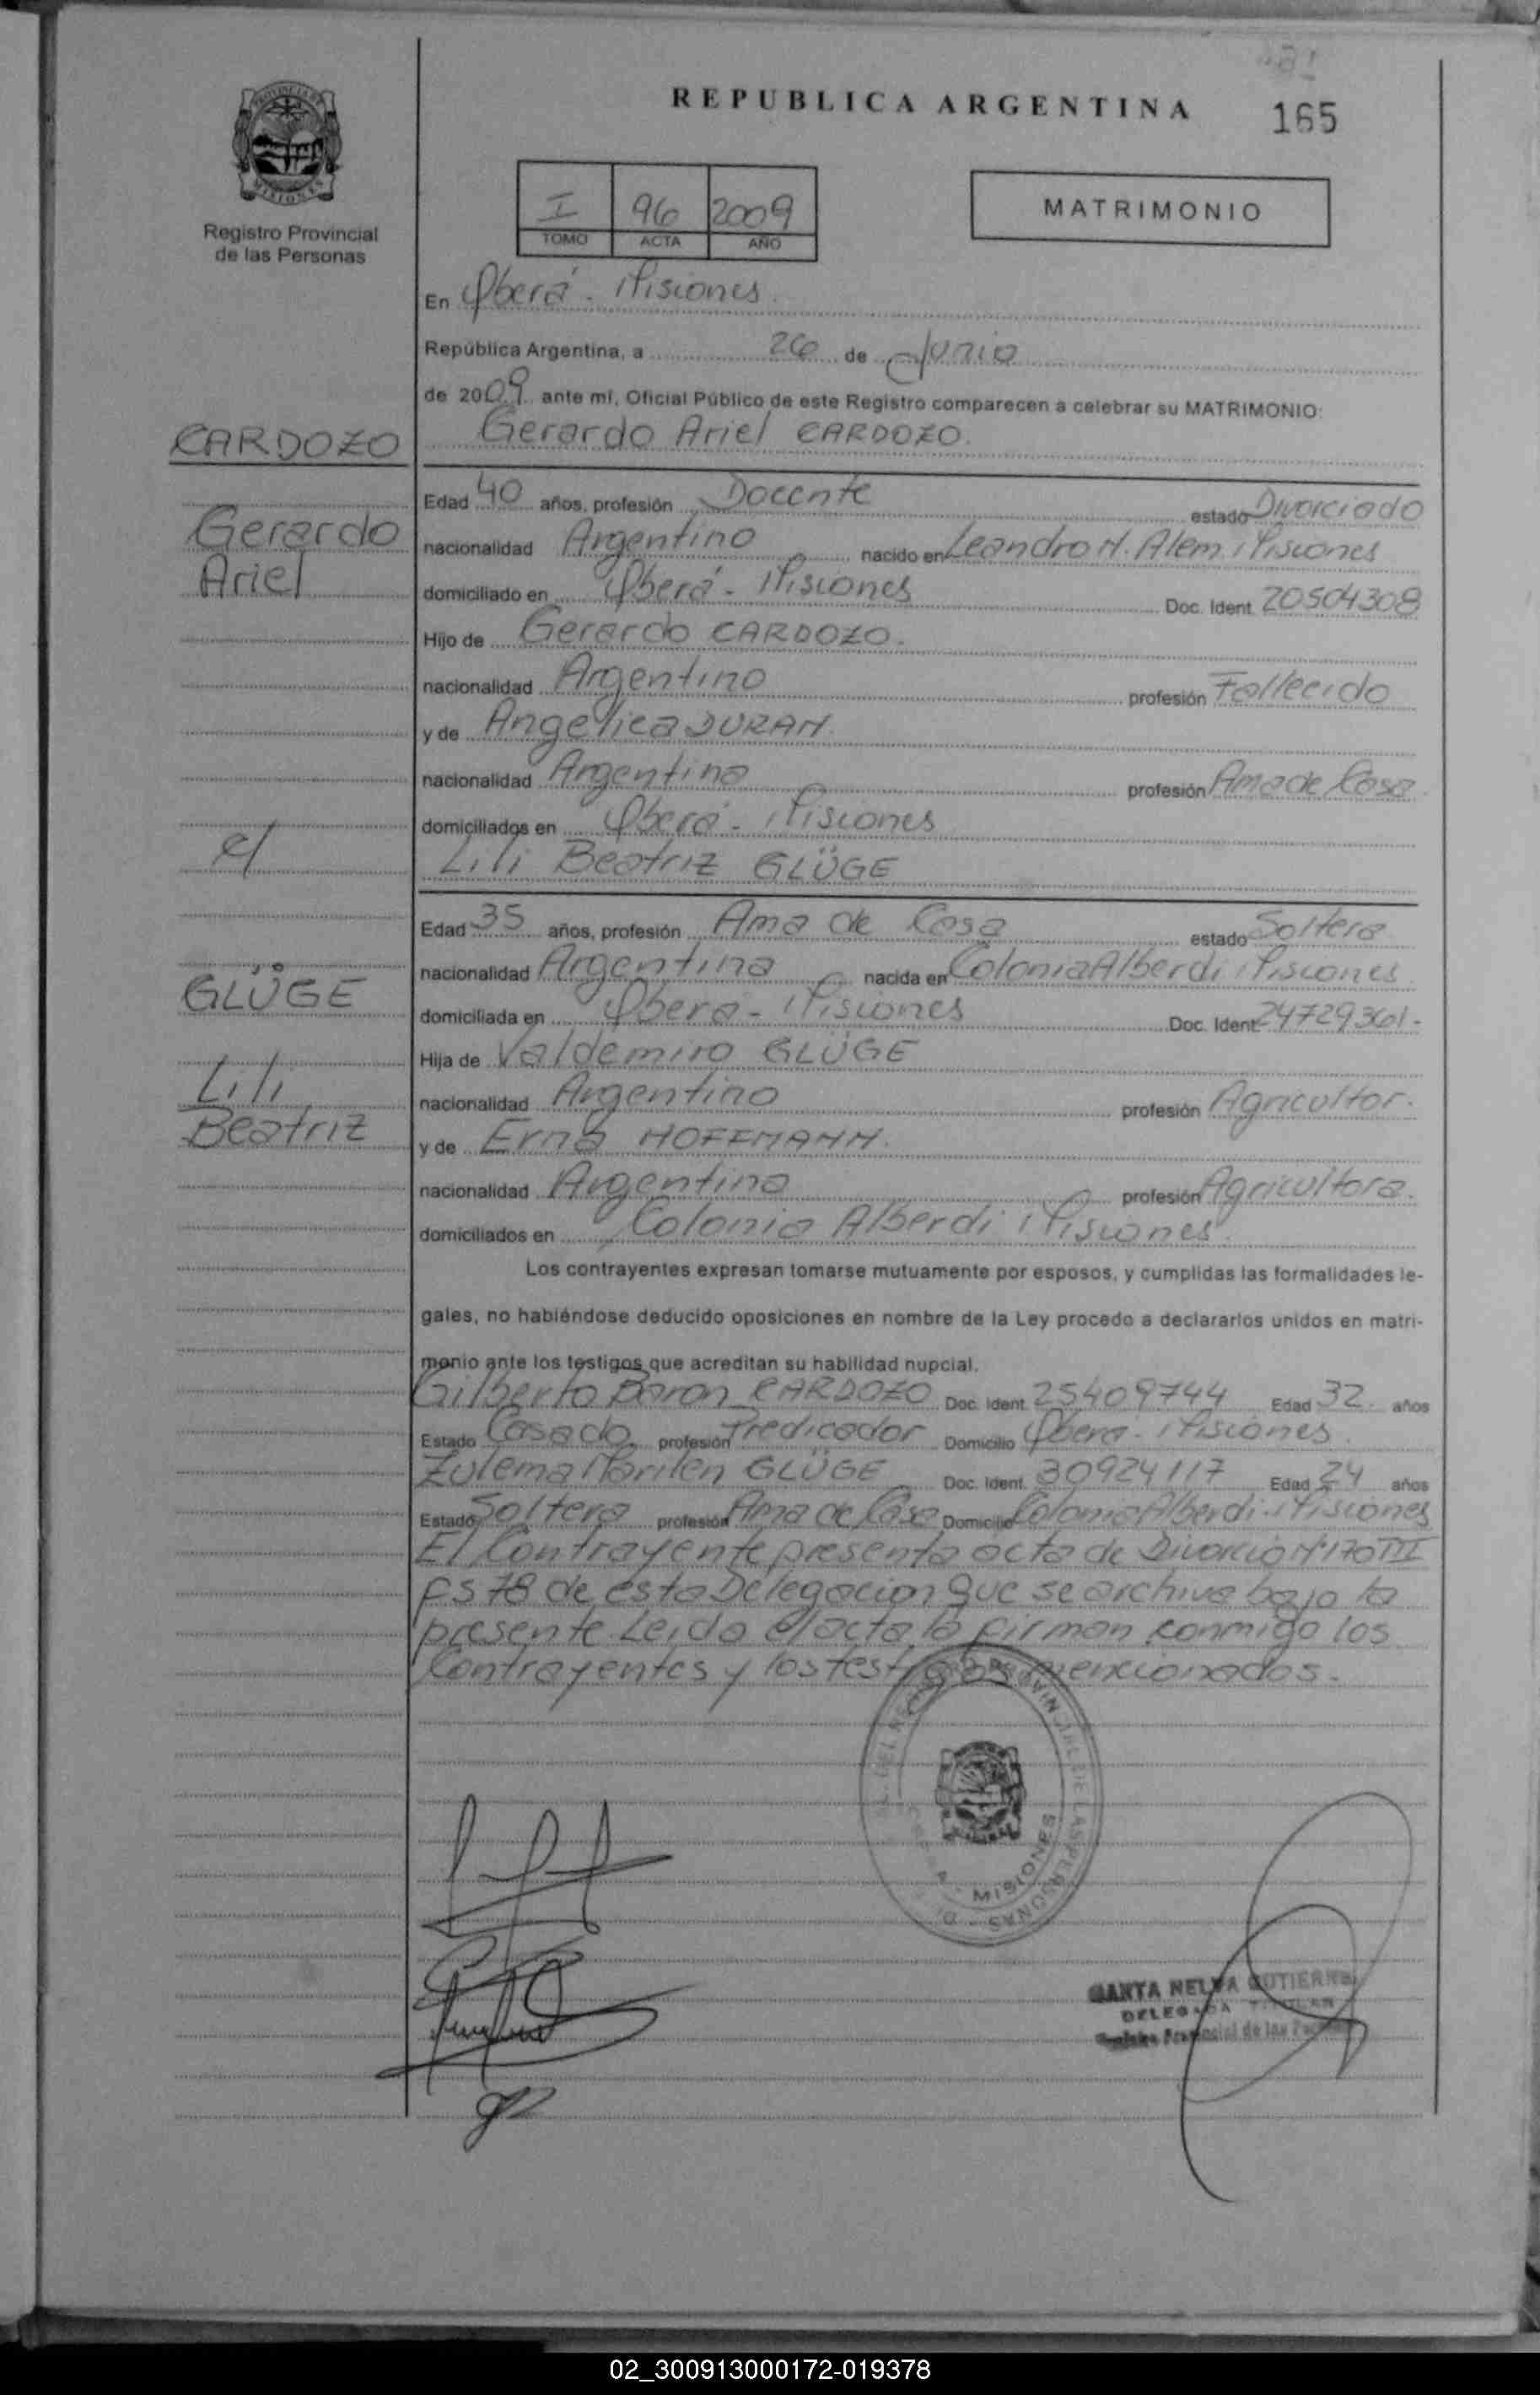 REPUBLICA ARGENTINA
165
PROVINCIA DE
MISIONES
Registro Provincial
de las Personas
I 96 2009
TOMO ACTA AÑO
MATRIMONIO
En Oberá - Misiones
República Argentina, a 26 de Junio
de 2009 ante mí, Oficial Público de este Registro comparecen a celebrar su MATRIMONIO:
CARDOZO
Gerardo Ariel CARDOZO.
Edad 40 años, profesión Docente estado Divorciado
Gerardo
nacionalidad Argentino nacido en Leandro N. Alem Misiones
Ariel
domiciliado en Oberá - Misiones Doc. Ident. 20504308
Hijo de Gerardo CARDOZO.
nacionalidad Argentino profesión Fallecido
y de Angelica DURAN.
nacionalidad Argentina profesión Ama de Casa.
domiciliados en Oberá - Misiones
c/
Lili Beatriz GLÜGE
Edad 35 años, profesión Ama de Casa estado Soltera
nacionalidad Argentina nacida en Colonia Alberdi Misiones
GLÜGE
domiciliada en Oberá - Misiones Doc. Ident. 24729361-
Hija de Valdemiro GLÜGE
Lili
nacionalidad Argentino profesión Agricultor.
Beatriz
y de Erna HOFFMANN.
nacionalidad Argentina profesión Agricultora.
domiciliados en Colonia Alberdi Misiones.
Los contrayentes expresan tomarse mutuamente por esposos, y cumplidas las formalidades le-
gales, no habiéndose deducido oposiciones en nombre de la Ley procedo a declararlos unidos en matri-
monio ante los testigos que acreditan su habilidad nupcial.
Gilberto Baron CARDOZO Doc. Ident. 25409744 Edad 32 años
Estado Casado profesión Predicador Domicilio Oberá - Misiones.
Zulema Marilen GLÜGE Doc. Ident. 30924117 Edad 24 años
Estado Soltera profesión Ama de Casa Domicilio Colonia Alberdi - Misiones
El Contrayente presenta acta de Divorcio Nº170 TIII
FS 78 de esta Delegacion que se archiva bajo la
presente. Leida el acta, la firman conmigo los
Contrayentes y los testigos mencionados.
MISIONES
DELEGADA TITULAR
Registro Provincial de las Personas
02_300913000172-019378